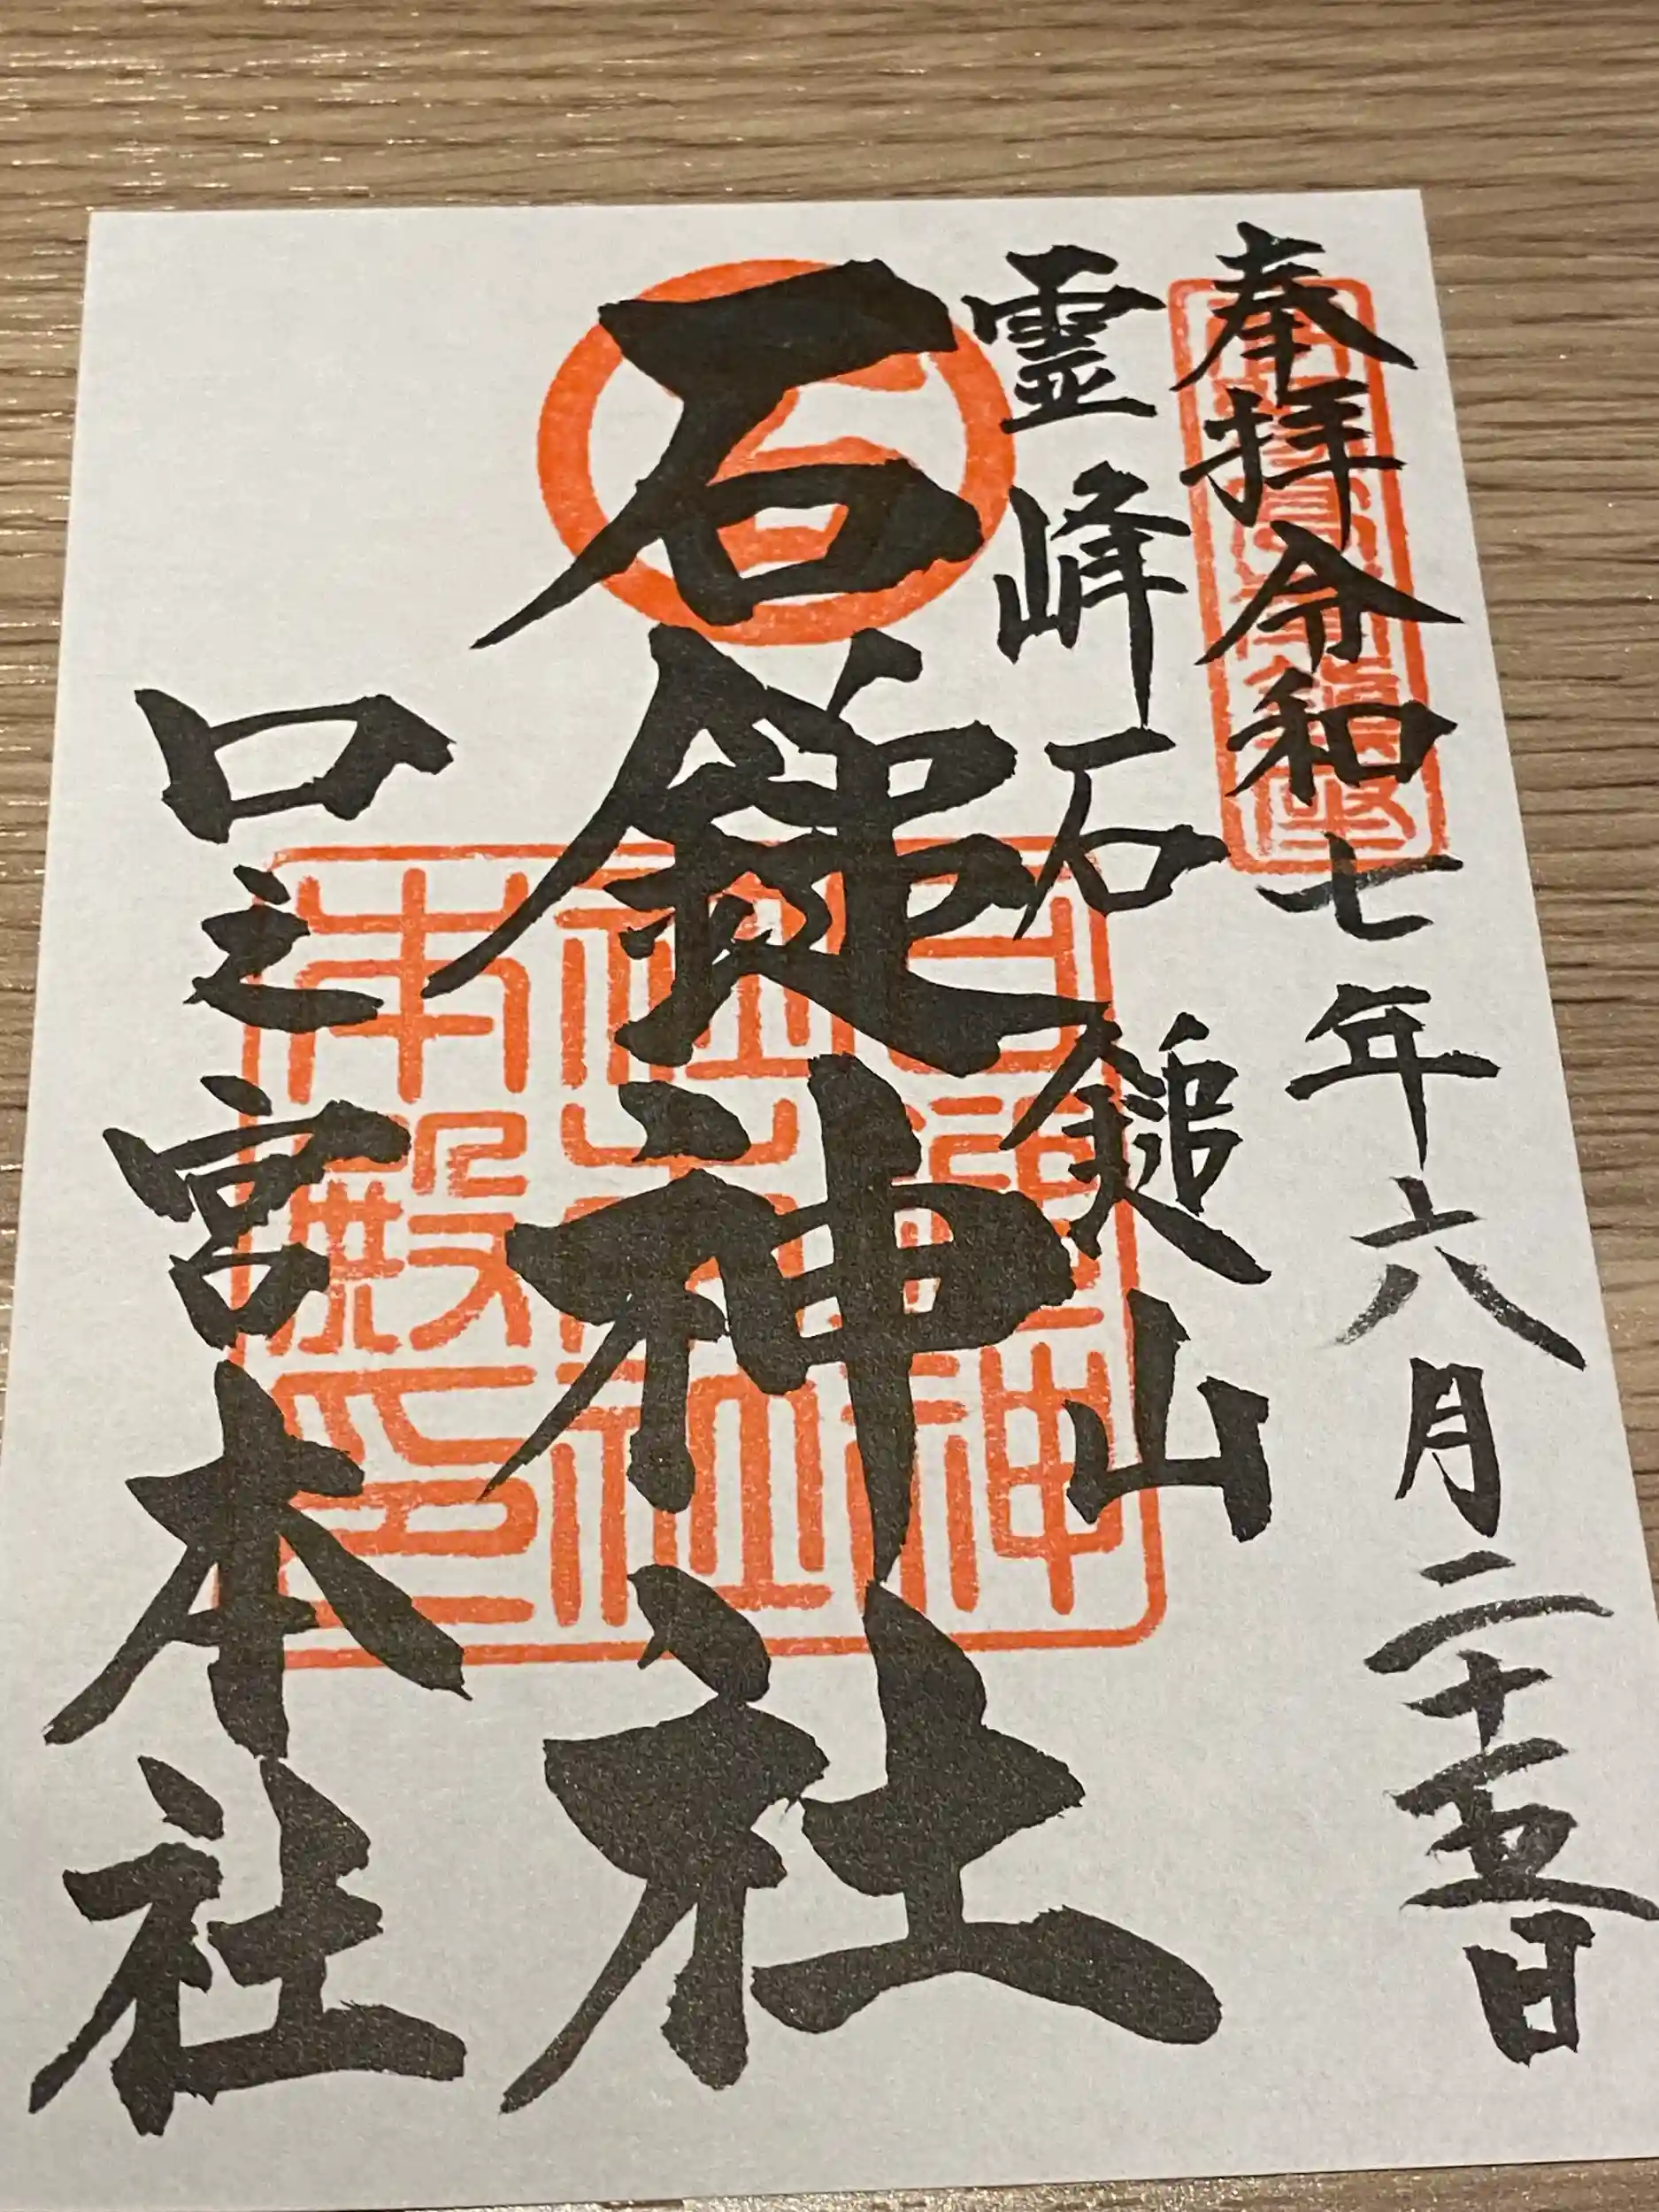 奉拝令和七年六月二十五日
霊峰石鎚山
石鎚神社
口之宮本社